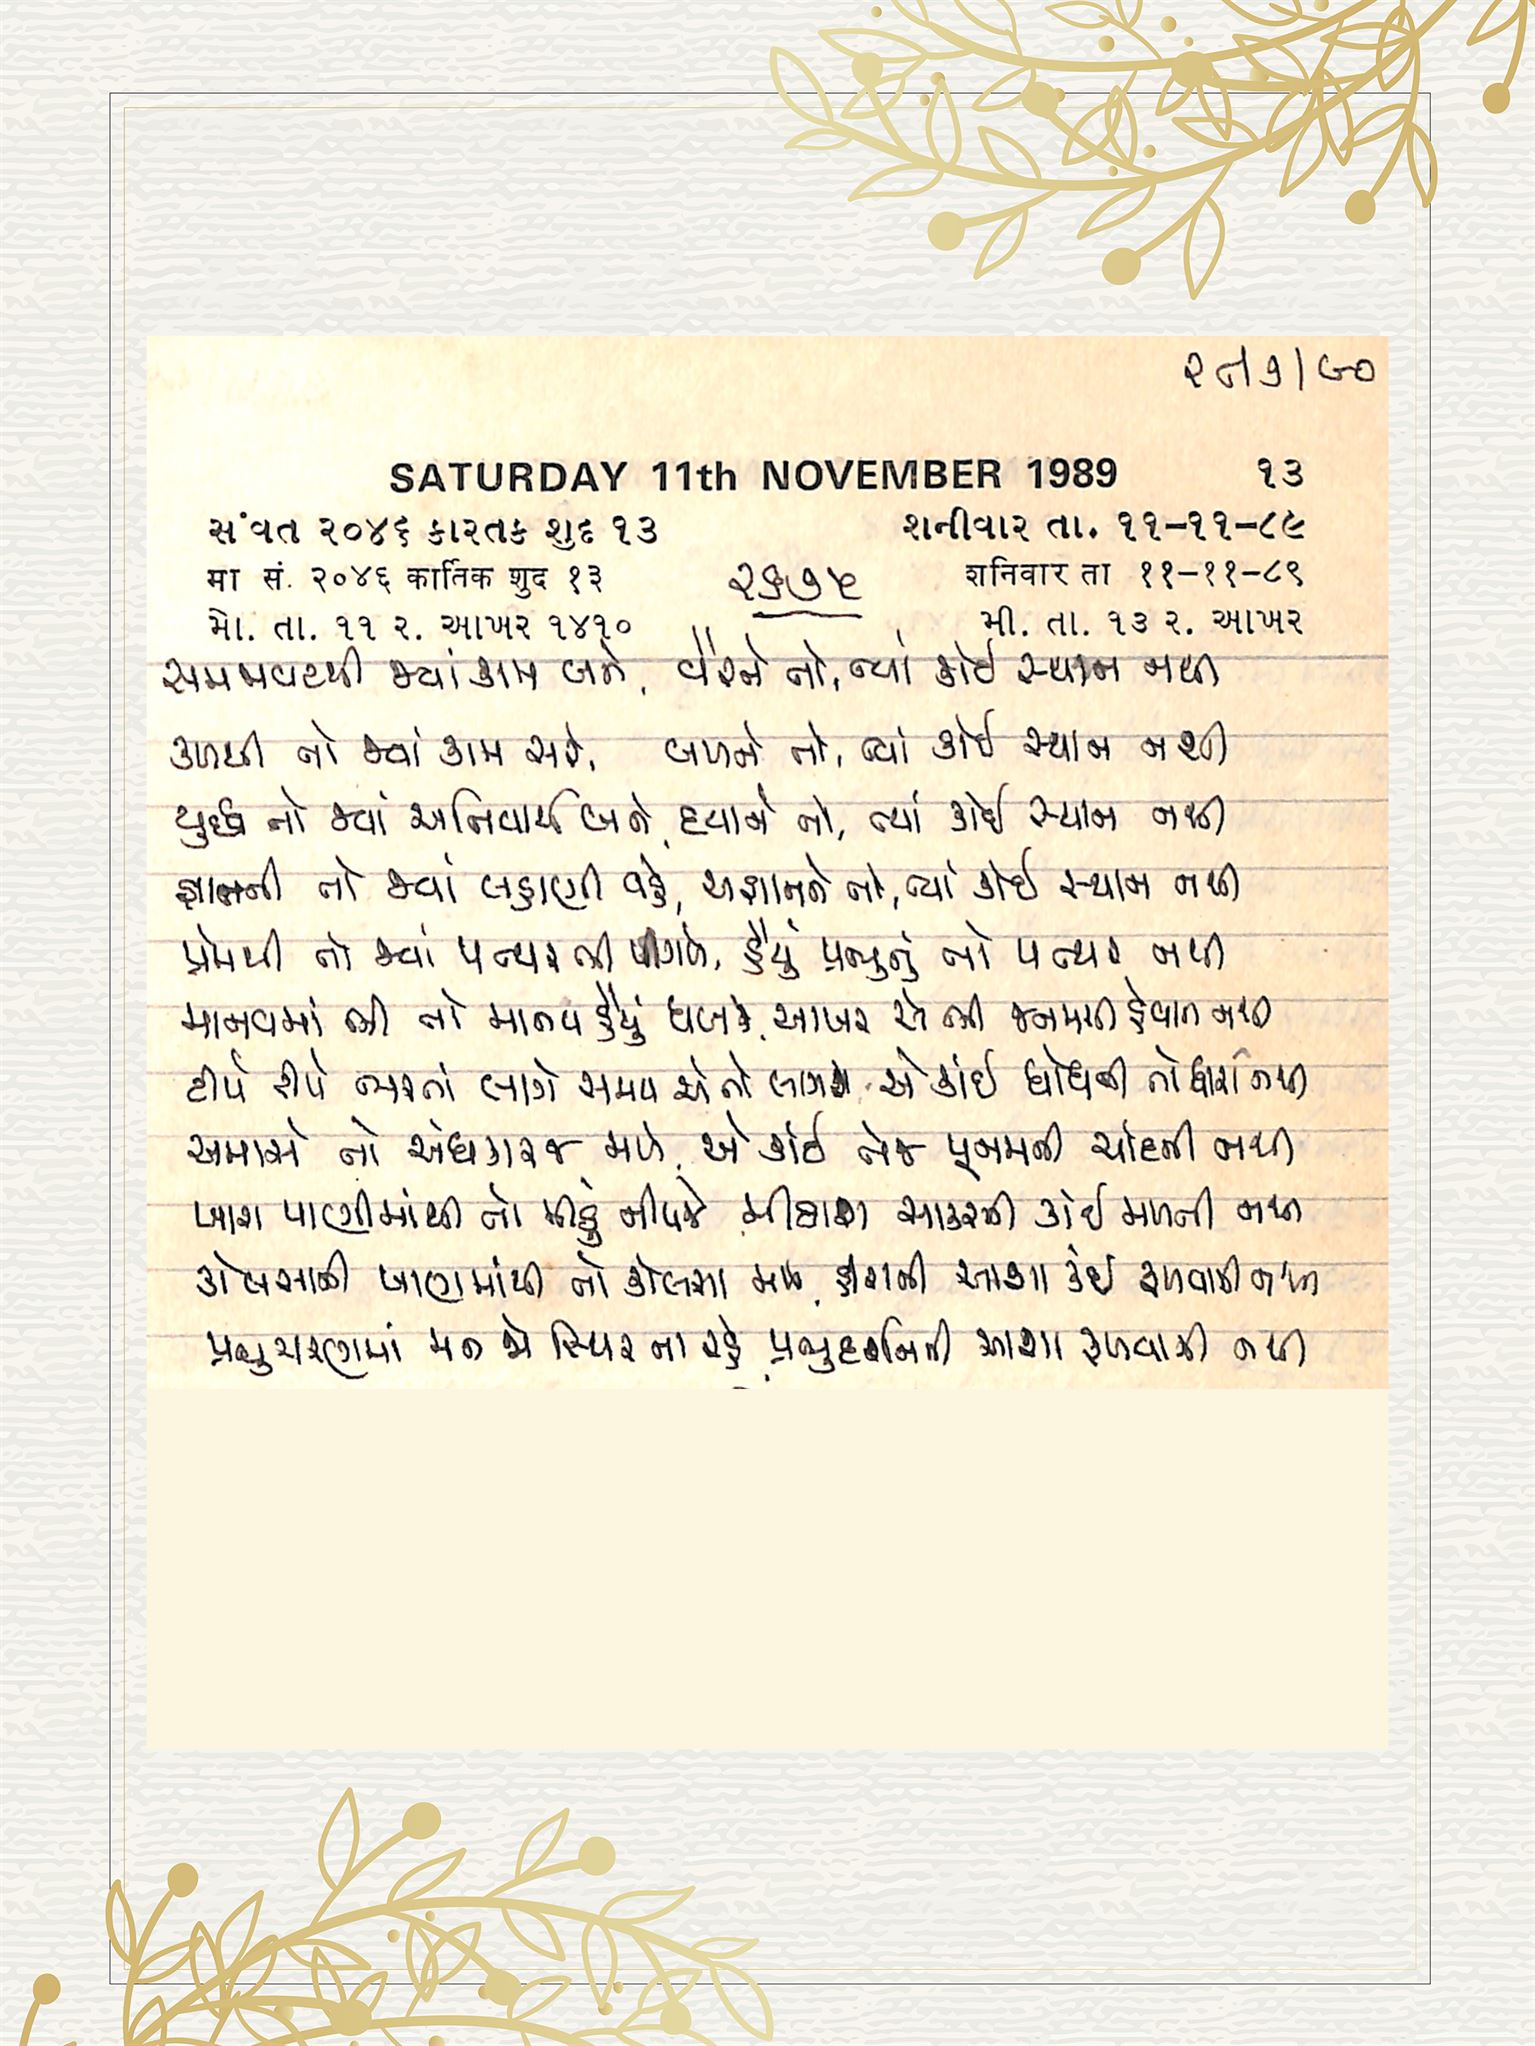 SATURDAY 11th NOVEMBER 1989 ૧૩
સંવત ૨૦૪૬ કારતક શુદ ૧૩ શનીવાર તા. ૧૧-૧૧-૮૯
मा सं. २०४६ कार्तिक शुद १३ शनिवार ता ११-११-८९
મો. તા. ૧૧ ર. આખર ૧૪૧૦ મી. તા. ૧૩ ર. આખર
સમજાવટથી જ્યાં કામ બને, વૈરને તો, ત્યાં કોઈ સ્થાન નથી
કળથી તો જ્યાં કામ સરે, બળને તો, ત્યાં કોઈ સ્થાન નથી
યુદ્ધ તો જ્યાં અનિવાર્ય બને, દયાને તો, ત્યાં કોઈ સ્થાન નથી
જ્ઞાનની તો જ્યાં લહાણી વહે, અજ્ઞાનને તો, ત્યાં કોઈ સ્થાન નથી
પ્રેમથી તો જ્યાં પથ્થર ભી પીગળે, હૈયું પ્રભુનું તો પથ્થર નથી
માનવમાં ભી તો માનવ હૈયું ધબકે, આખર એ ભી જનમથી હેવાન નથી
ટીપે ટીપે ભરતાં લાગે સમય એ તો લાગશે, એ કાંઈ ધોધની તો ધારા નથી
અમાસે તો અંધકારજ મળે, એ કાંઈ તેજ પૂનમની ચાંદની નથી
ખારા પાણીમાંથી તો મીઠું નીપજે મીઠાશ સાકરની કોઈ મળતી નથી
કોલસાની ખાણમાંથી તો કોલસા મળે, હીરાની આશા કંઈ ફળવાની નથી
પ્રભુચરણમાં મન જો સ્થિર ના રહે, પ્રભુદર્શનની આશા ફળવાની નથી